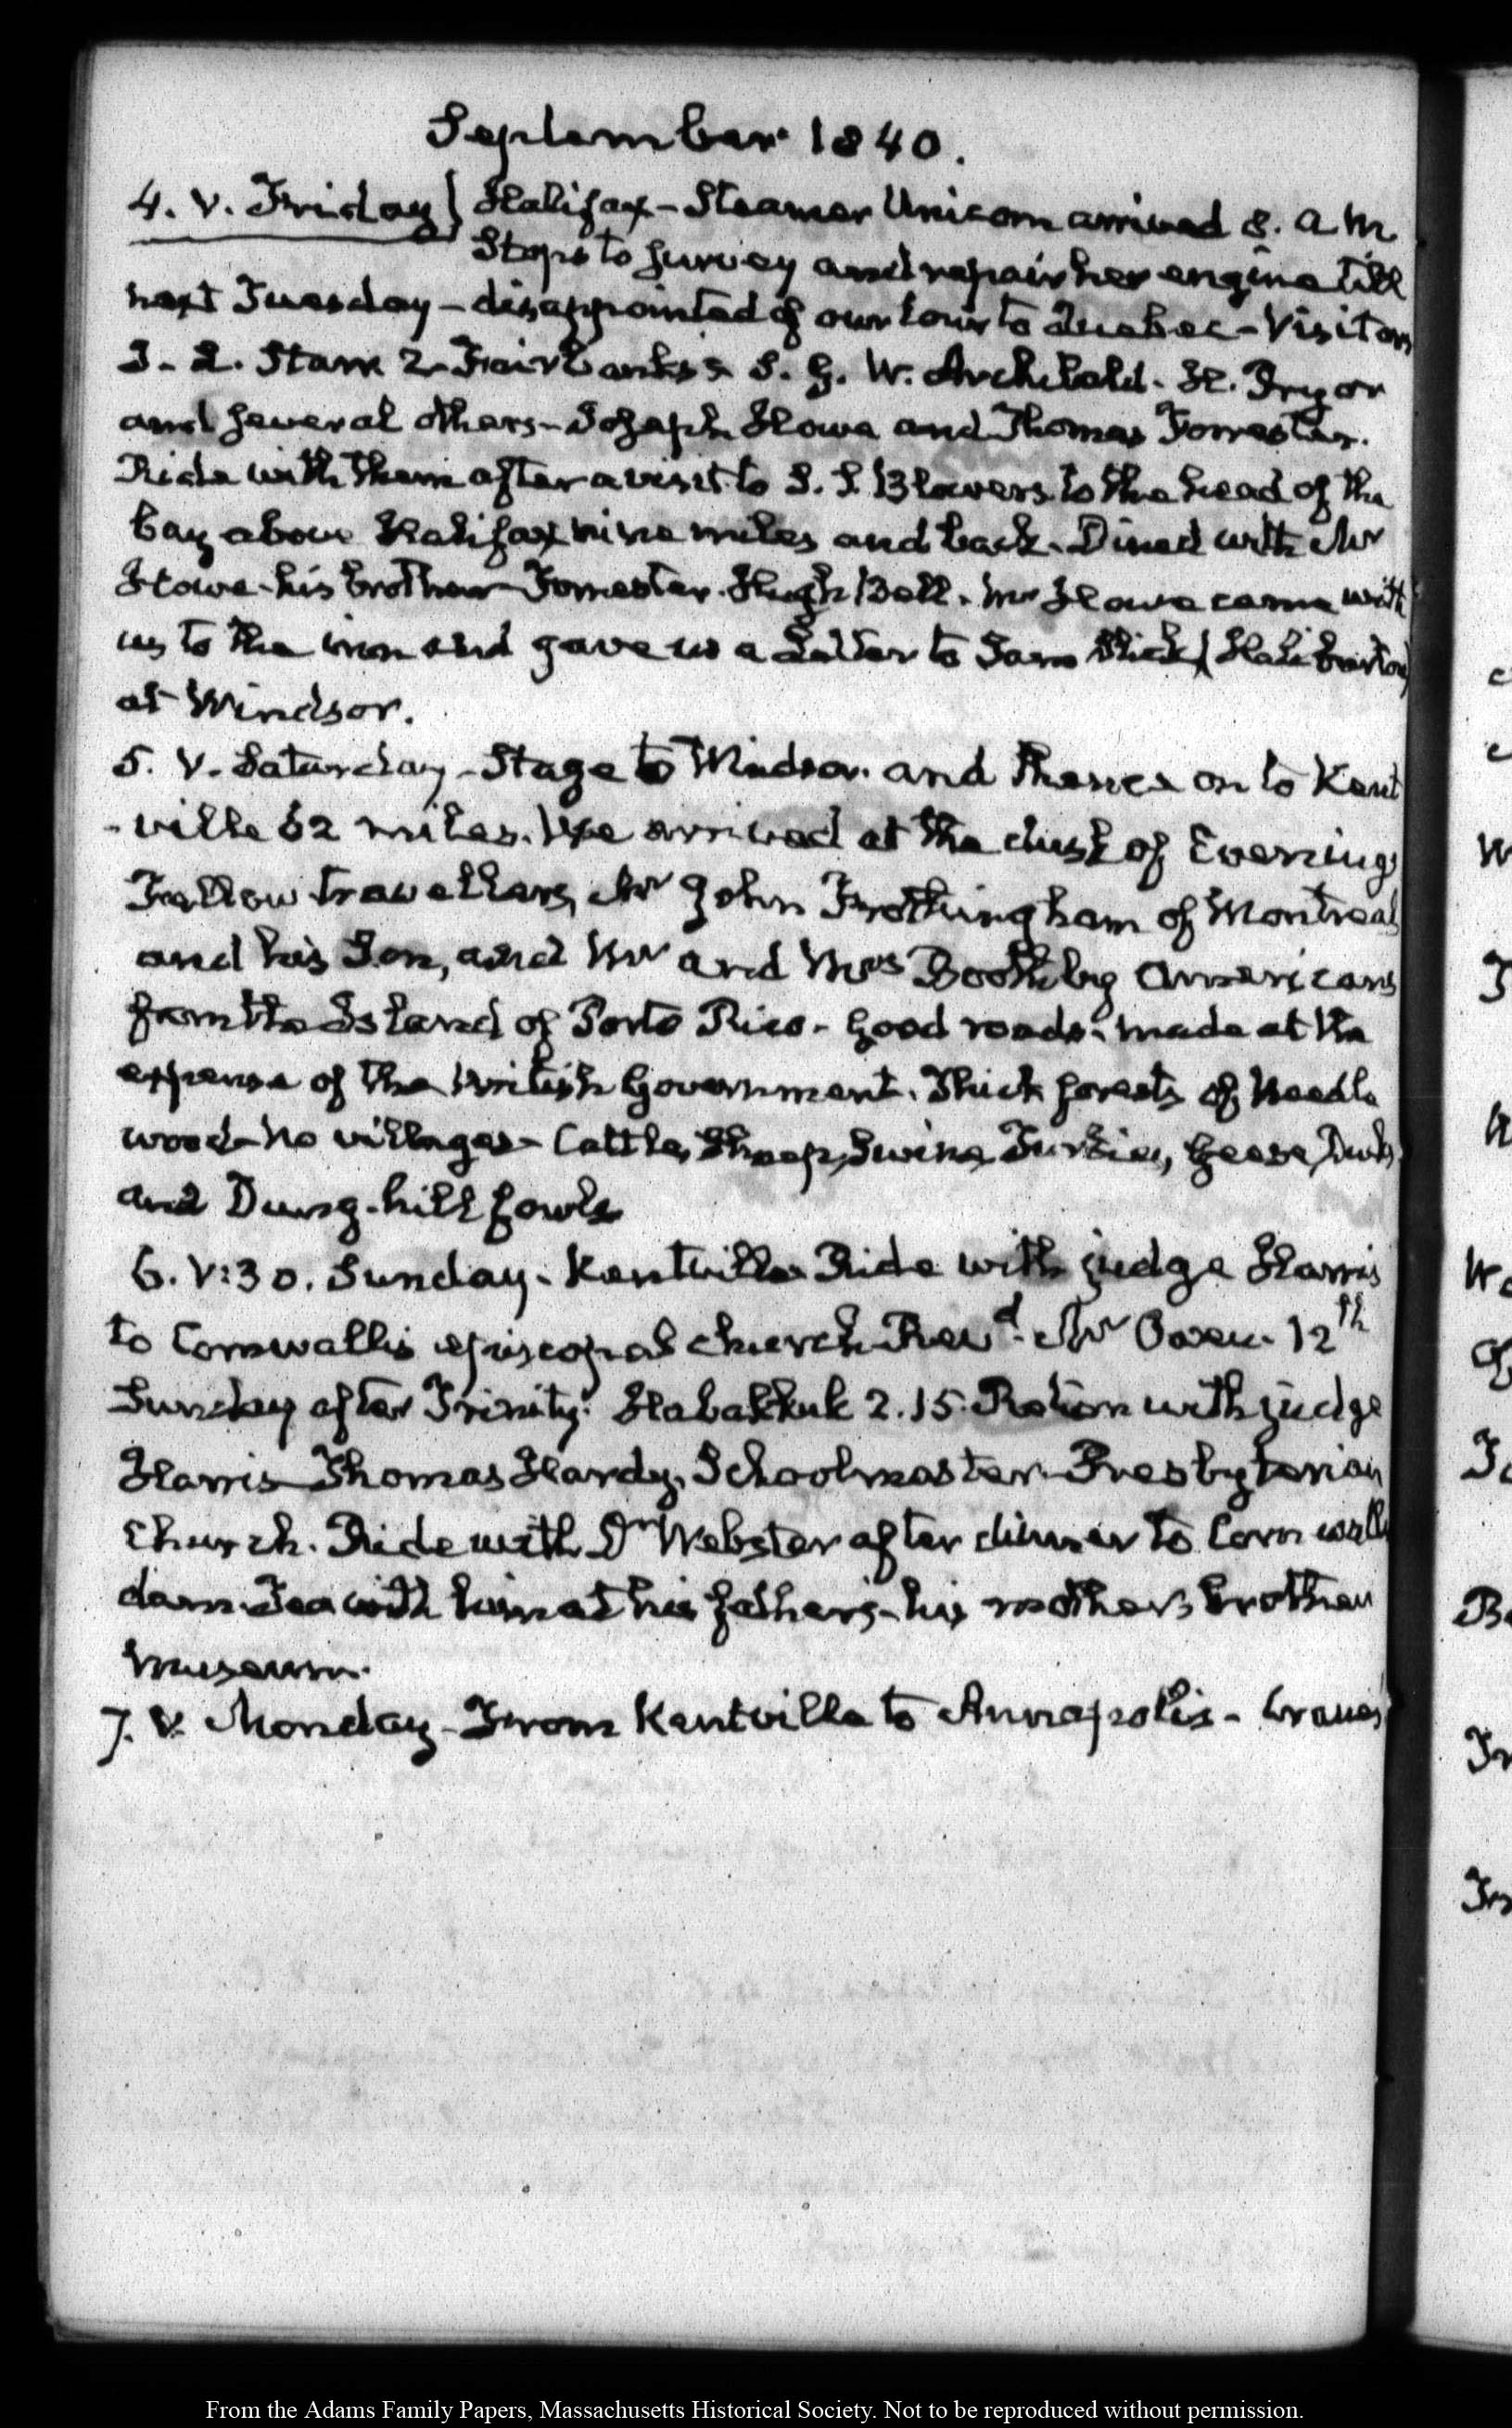 September 1840.
4. V. Friday} Halifax - Steamer Unicorn arrived 8. a.m.
Stops to survey and repair her engine till
next Tuesday - disappointed of our tour to Quebec - Visitors
J. L. Starr 2 Fairbanks's S. G. W. Archibald. H. Pryor
and several others - Joseph Howe and Thomas Forrester.
Ride with them after a visit to S. S. Blowers to the head of the
bay above Halifax nine miles and back. Dined with Mr
Howe - his brother Forrester. Hugh Bell. Mr Howe came with
us to the inn and gave us a Letter to Sam Slick (Haliburton)
at Windsor.
5. V. Saturday - Stage to Windsor. and thence on to Kent
-ville 62 miles. We arrived at the dusk of Evening
Fellow travellers, Mr John Frothingham of Montreal
and his Son, and Mr and Mrs Boothby Americans
from the Island of Porto Rico - good roads - made at the
expense of the British Government. Thick forests of Needle
wood - no villages - Cattle, Sheep, Swine, Turkies, Geese, Ducks
and Dung-hill fowls
6. V:30. Sunday. Kentville Ride with judge Harris
to Cornwallis episcopal church Revd. Mr Owen. 12th
Sunday after Trinity. Habakkuk 2.15. Return with judge
Harris Thomas Hardy, Schoolmaster Presbyterian
Church. Ride with Dr Webster after dinner to Cornwallis
dam Tea with him at his fathers - his mother, brother
museum.
7. V. Monday - From Kentville to Annapolis -
From the Adams Family Papers, Massachusetts Historical Society. Not to be reproduced without permission.